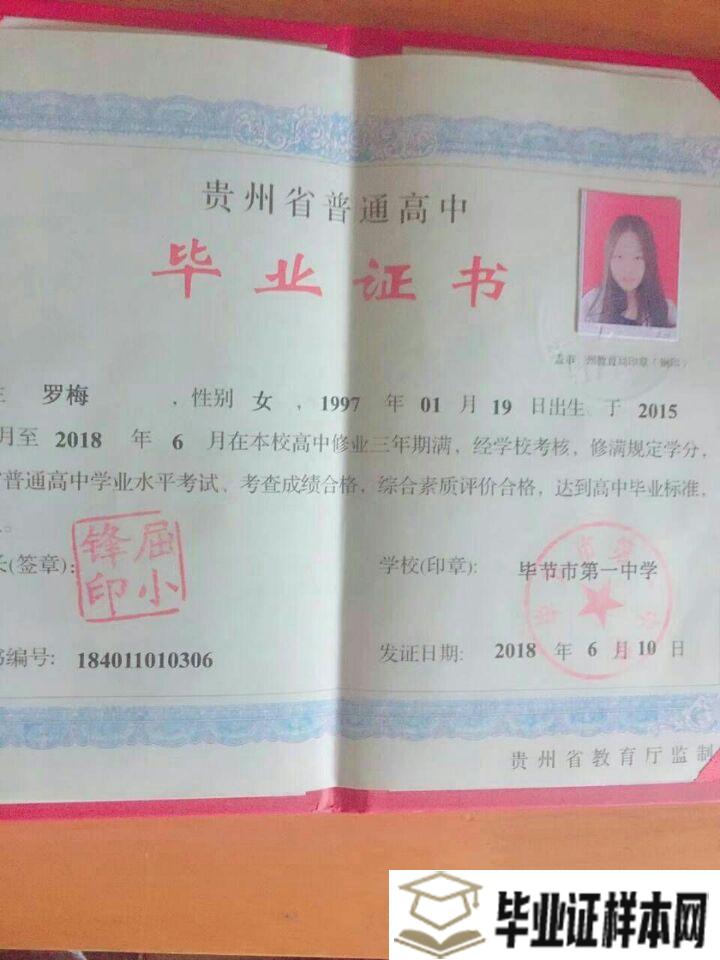 贵州省普通高中
毕业证书
盖市 州教育局印章(钢印)
罗梅 ,性别 女 , 1997 年 01 月 19 日出生、于 2015
月至 2018 年 6 月在本校高中修业三年期满,经学校考核,修满规定学分,
普通高中学业水平考试、考查成绩合格,综合素质评价合格,达到高中毕业标准,
。
长(签章):
屈小锋印
学校(印章): 毕节市第一中学
书编号: 184011010306
发证日期: 2018 年 6 月 10 日
贵州省教育厅监制
毕业证样本网